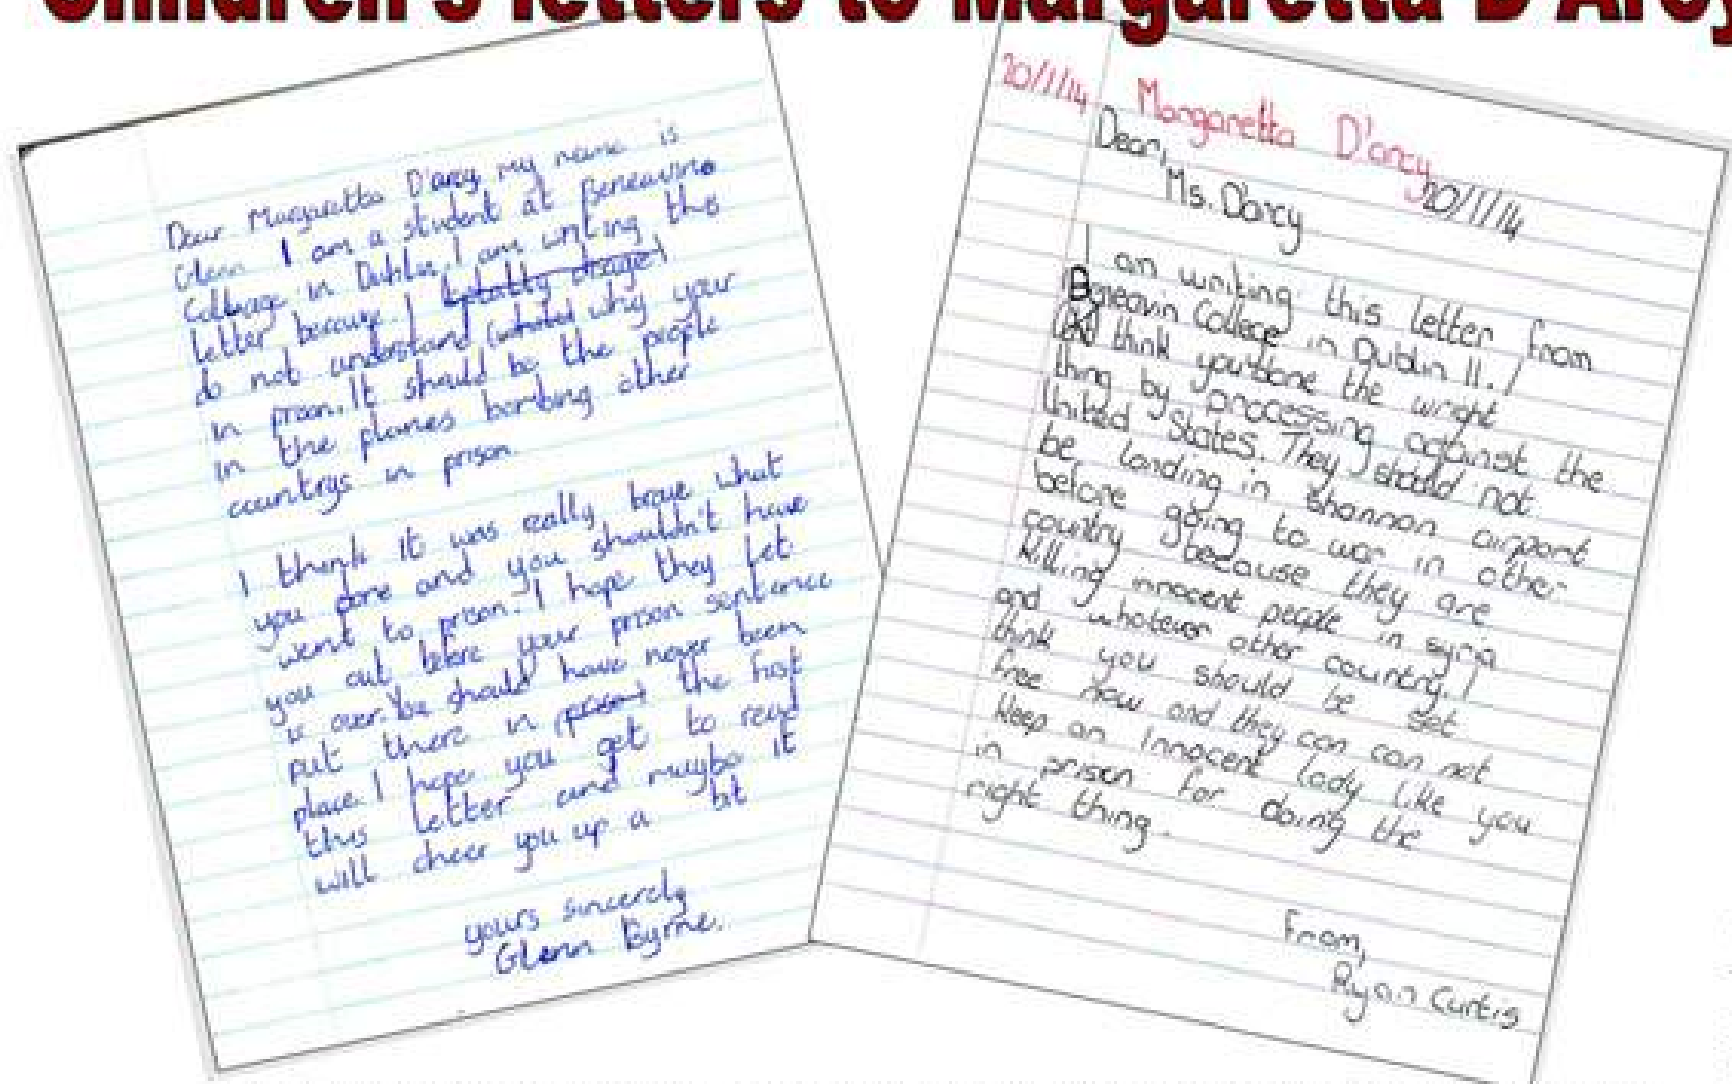 Children's letters to Margaretta D'Arcy
Dear Margaretta D'arcy my name is
Glenn I am a student at Beneavino
Collage in Dublin, I am writing this
letter because I totally disagree I
do not understand why your
in prison. It should be the people
in the planes bombing other
countrys in prison.
I think it was really brave what
you done and you shouldn't have
went to prison. I hope they let
you out before your prison sentence
is over. You should have never been
put there in the first
place. I hope you get to read
this letter and maybe it
will cheer you up a bit
yours sincerely
Glenn Byrne.
20/1/14 Margaretta D'arcy
Dear, 20/1/14
Ms. D'arcy
I an writing this letter from
Beneavin College in Dublin 11. I
think you done the wright
thing by processing against the
United States. They should not
be landing in Shannon airport
before going to war in other
country because they are
killing innocent people in syria
and whatever other country. I
think you should be set
free now and they can can not
keep an innocent lady like you
in prison for doing the
right thing.
From,
Ryan Curtis